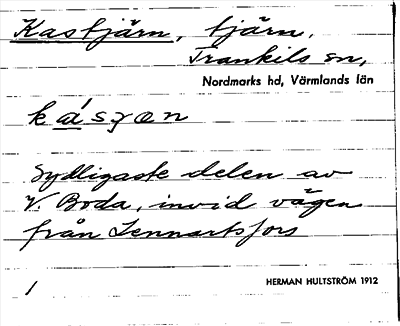 Kastjärn, tjärn,
Trankils sn,
Nordmarks hd, Värmlands län
Sydligaste delen av
V. Boda, invid vägen
från Lennartsfors
1 HERMAN HULTSTRÖM 1912